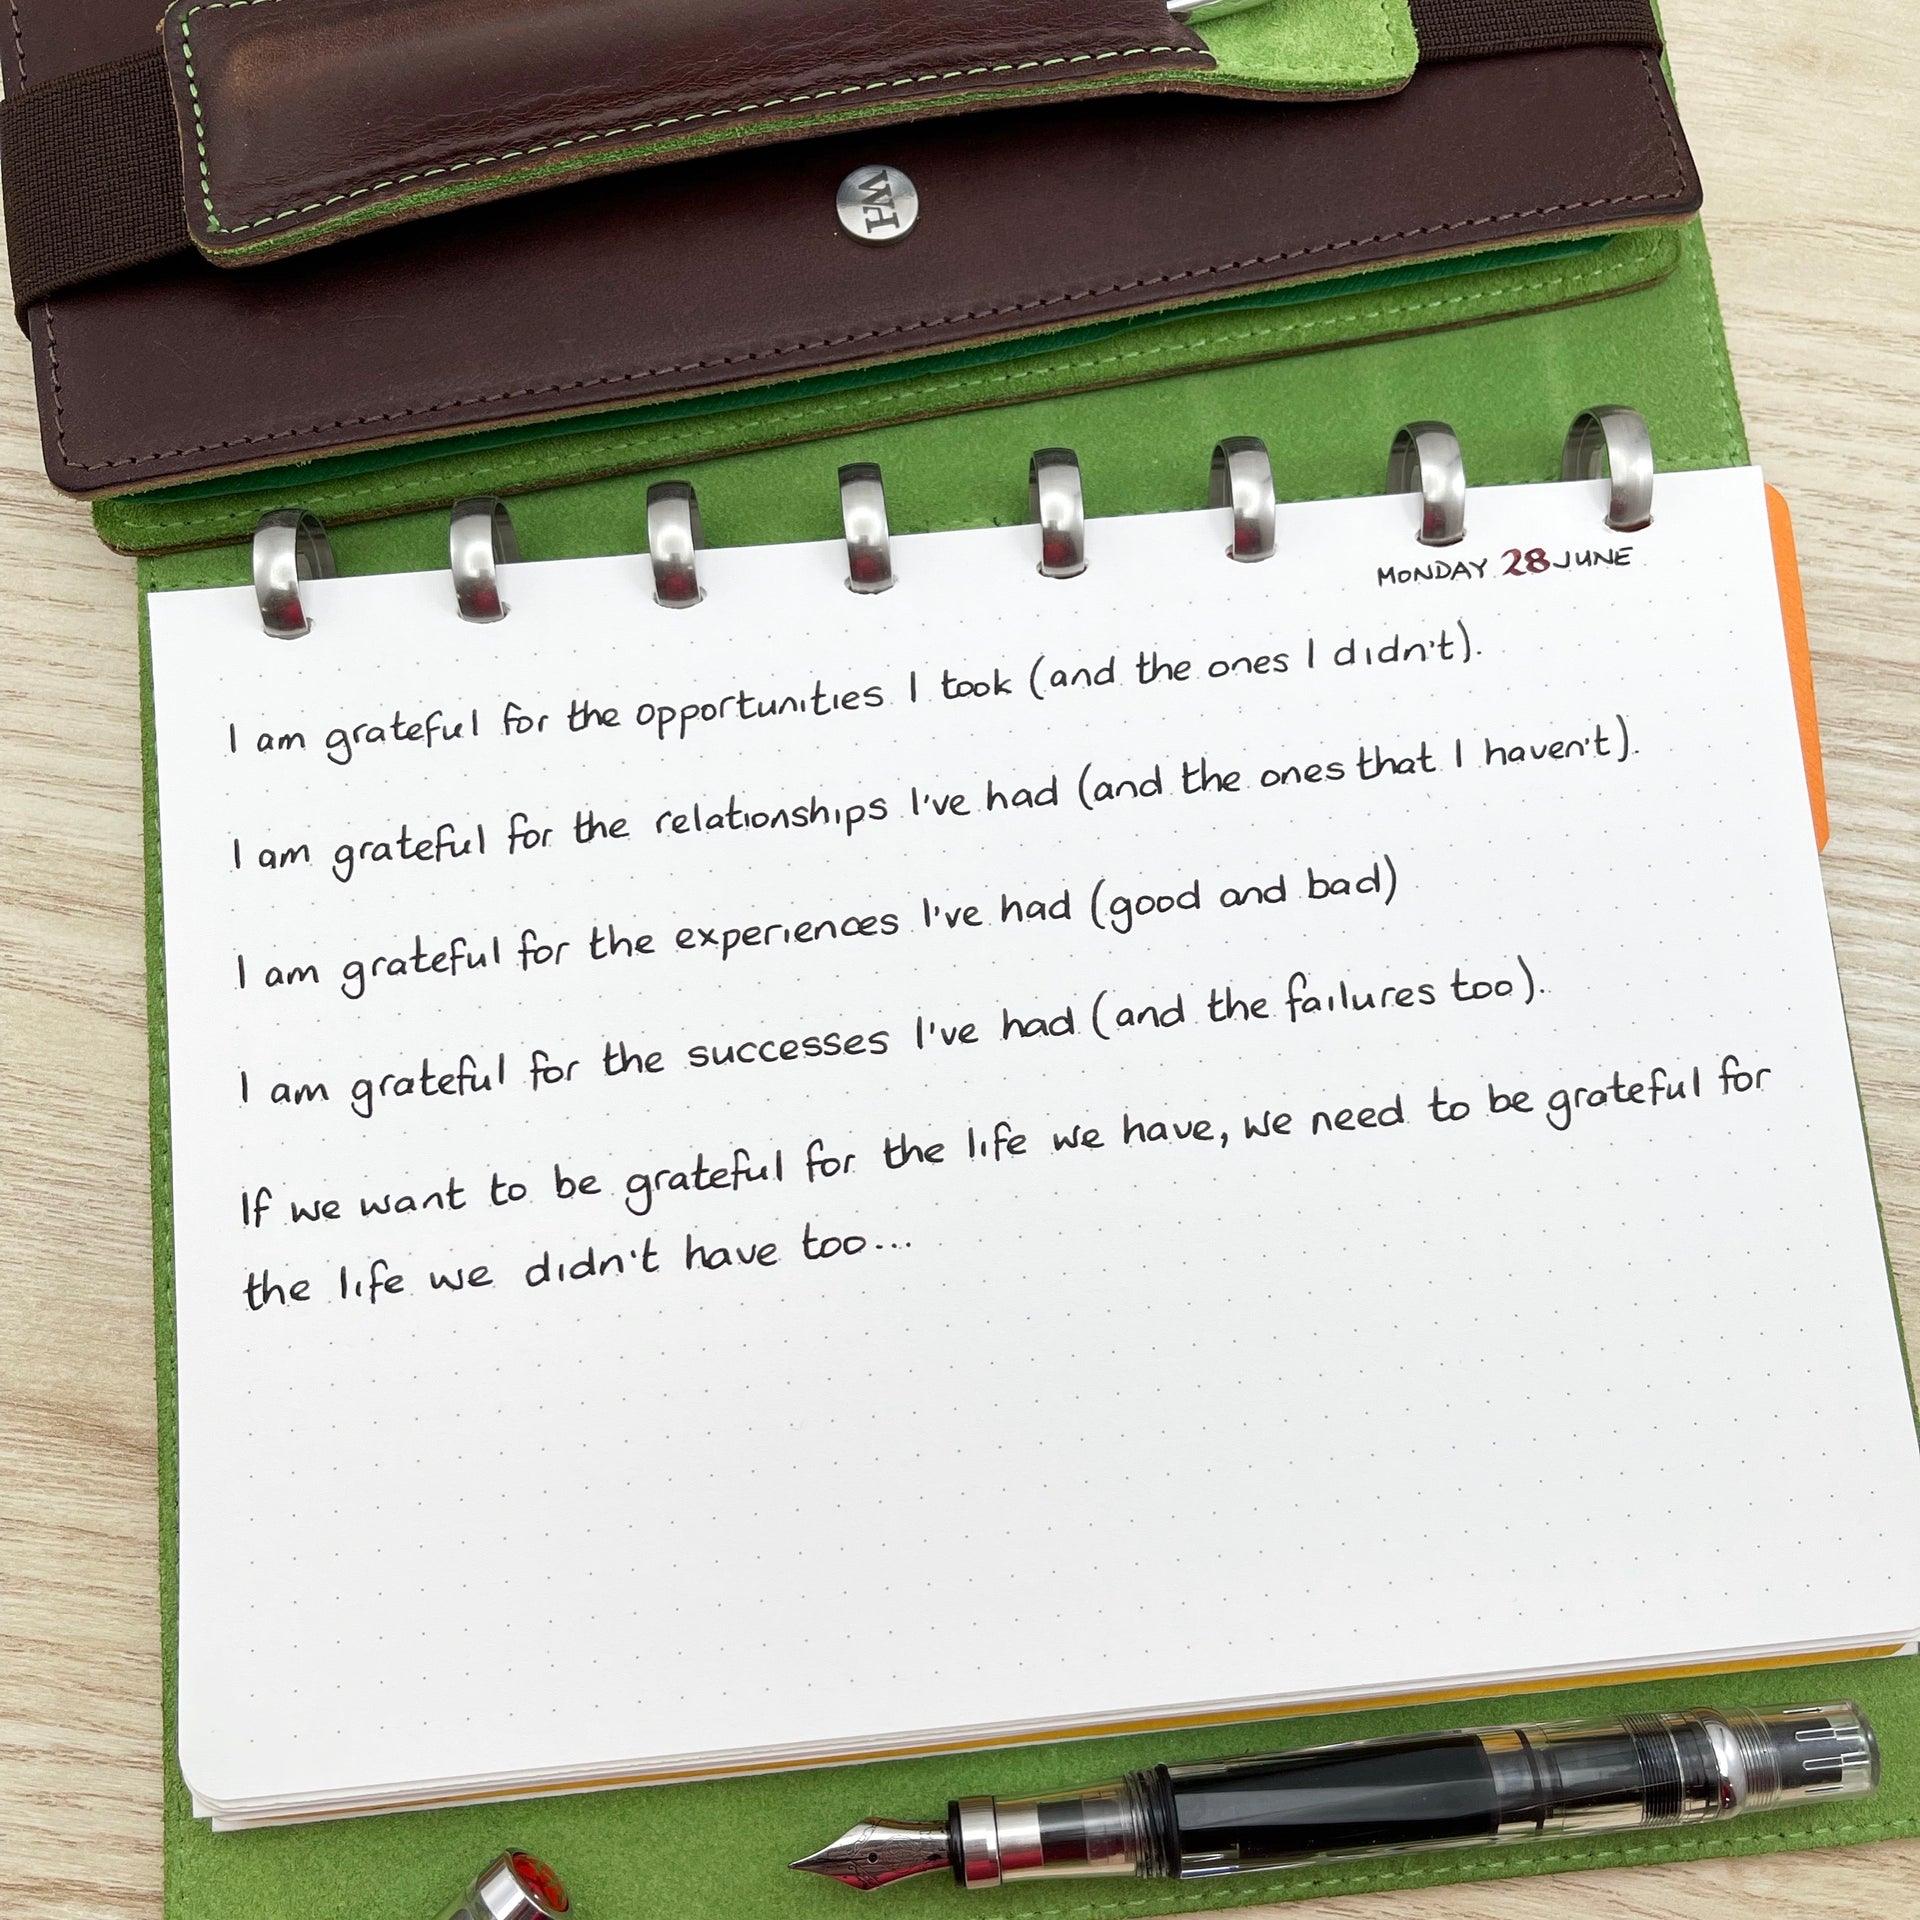 WH
MONDAY 28 JUNE
I am grateful for the opportunities I took (and the ones I didn't).
I am grateful for the relationships I've had (and the ones that I haven't).
I am grateful for the experiences I've had (good and bad)
I am grateful for the successes I've had (and the failures too).
If we want to be grateful for the life we have, we need to be grateful for
the life we didn't have too...